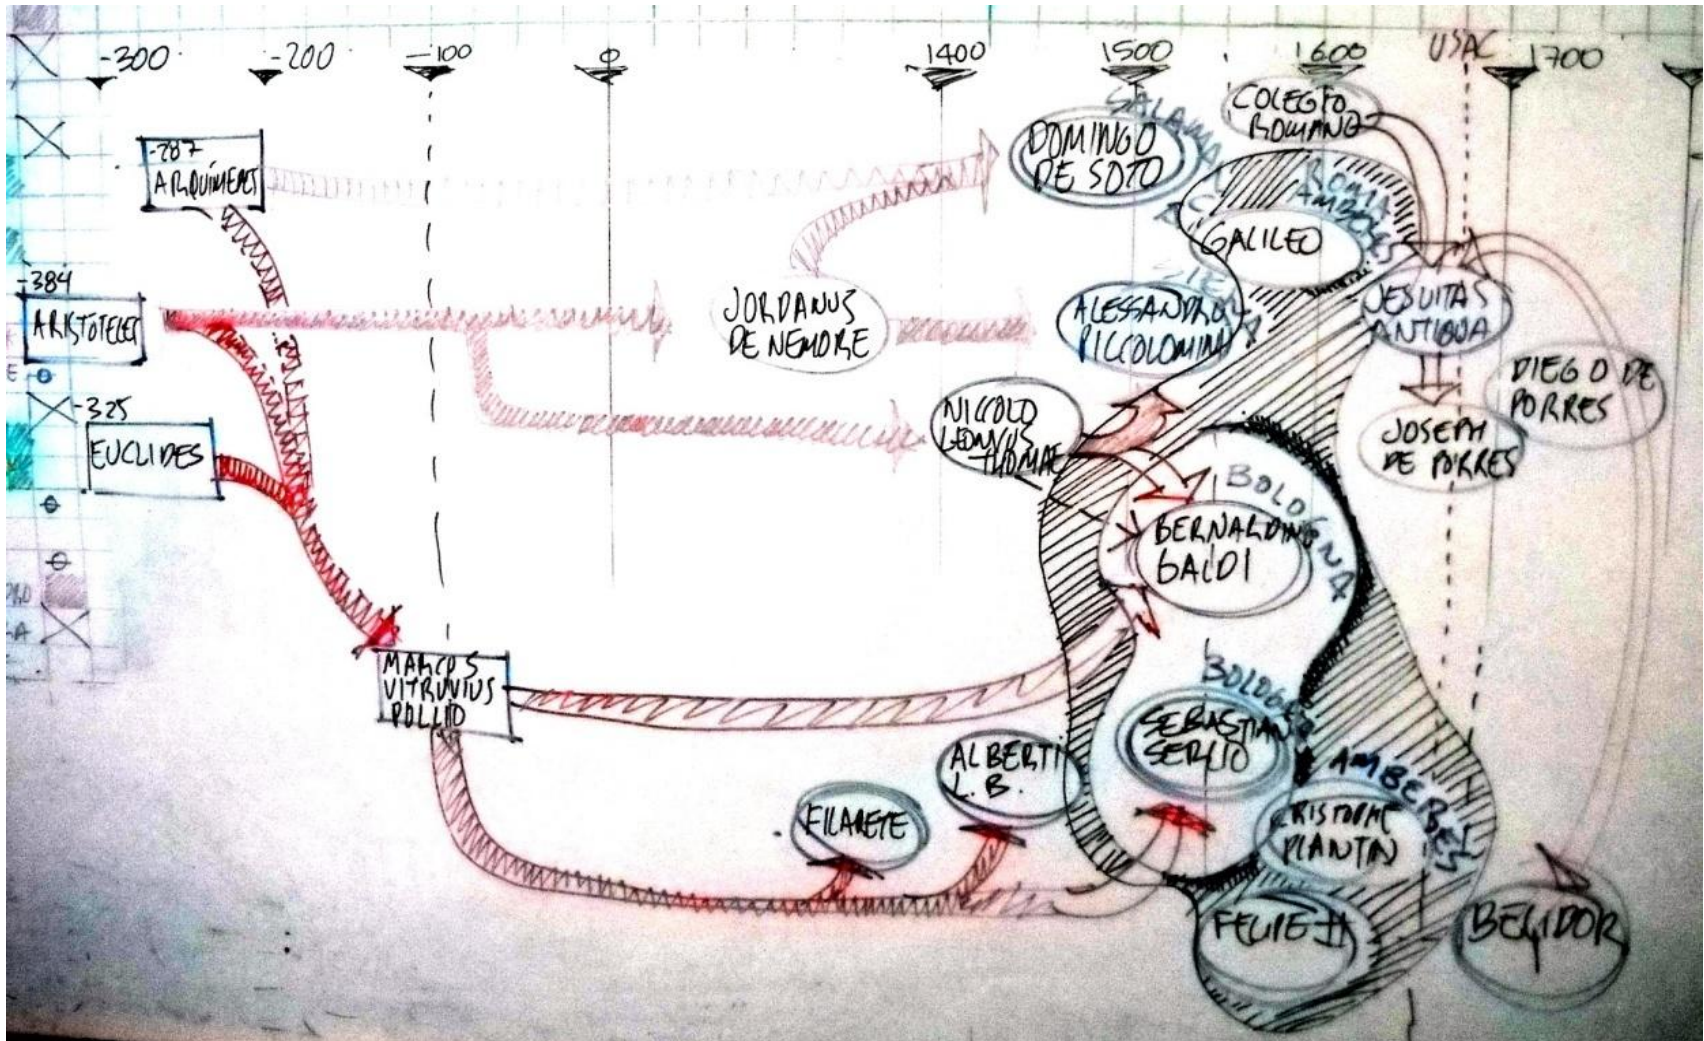 -300
-200
-100
0
1400
1500
1600
USAC
1700
-287
ARQUÍMEDES
-384
ARISTOTELES
-325
EUCLIDES
MARCOS
VITRUVIUS
POLLIO
JORDANUS
DE NEMORE
NICCOLO
LEONICUS
THOMAE
FILARETE
ALBERTI
L. B.
DOMINGO
DE SOTO
ALESSANDRO
PICCOLOMINI
COLEGIO
ROMANO
ROMA
AMBERES
GALILEO
SIENA
JESUITAS
ANTIGUA
JOSEPH
DE PORRES
DIEGO DE
PORRES
BOLOGNA
BERNARDINO
BALDI
BOLOGNA
SEBASTIAN
SERLIO
AMBERES
CRISTOPHE
PLANTIN
FELIPE II
BELIDOR